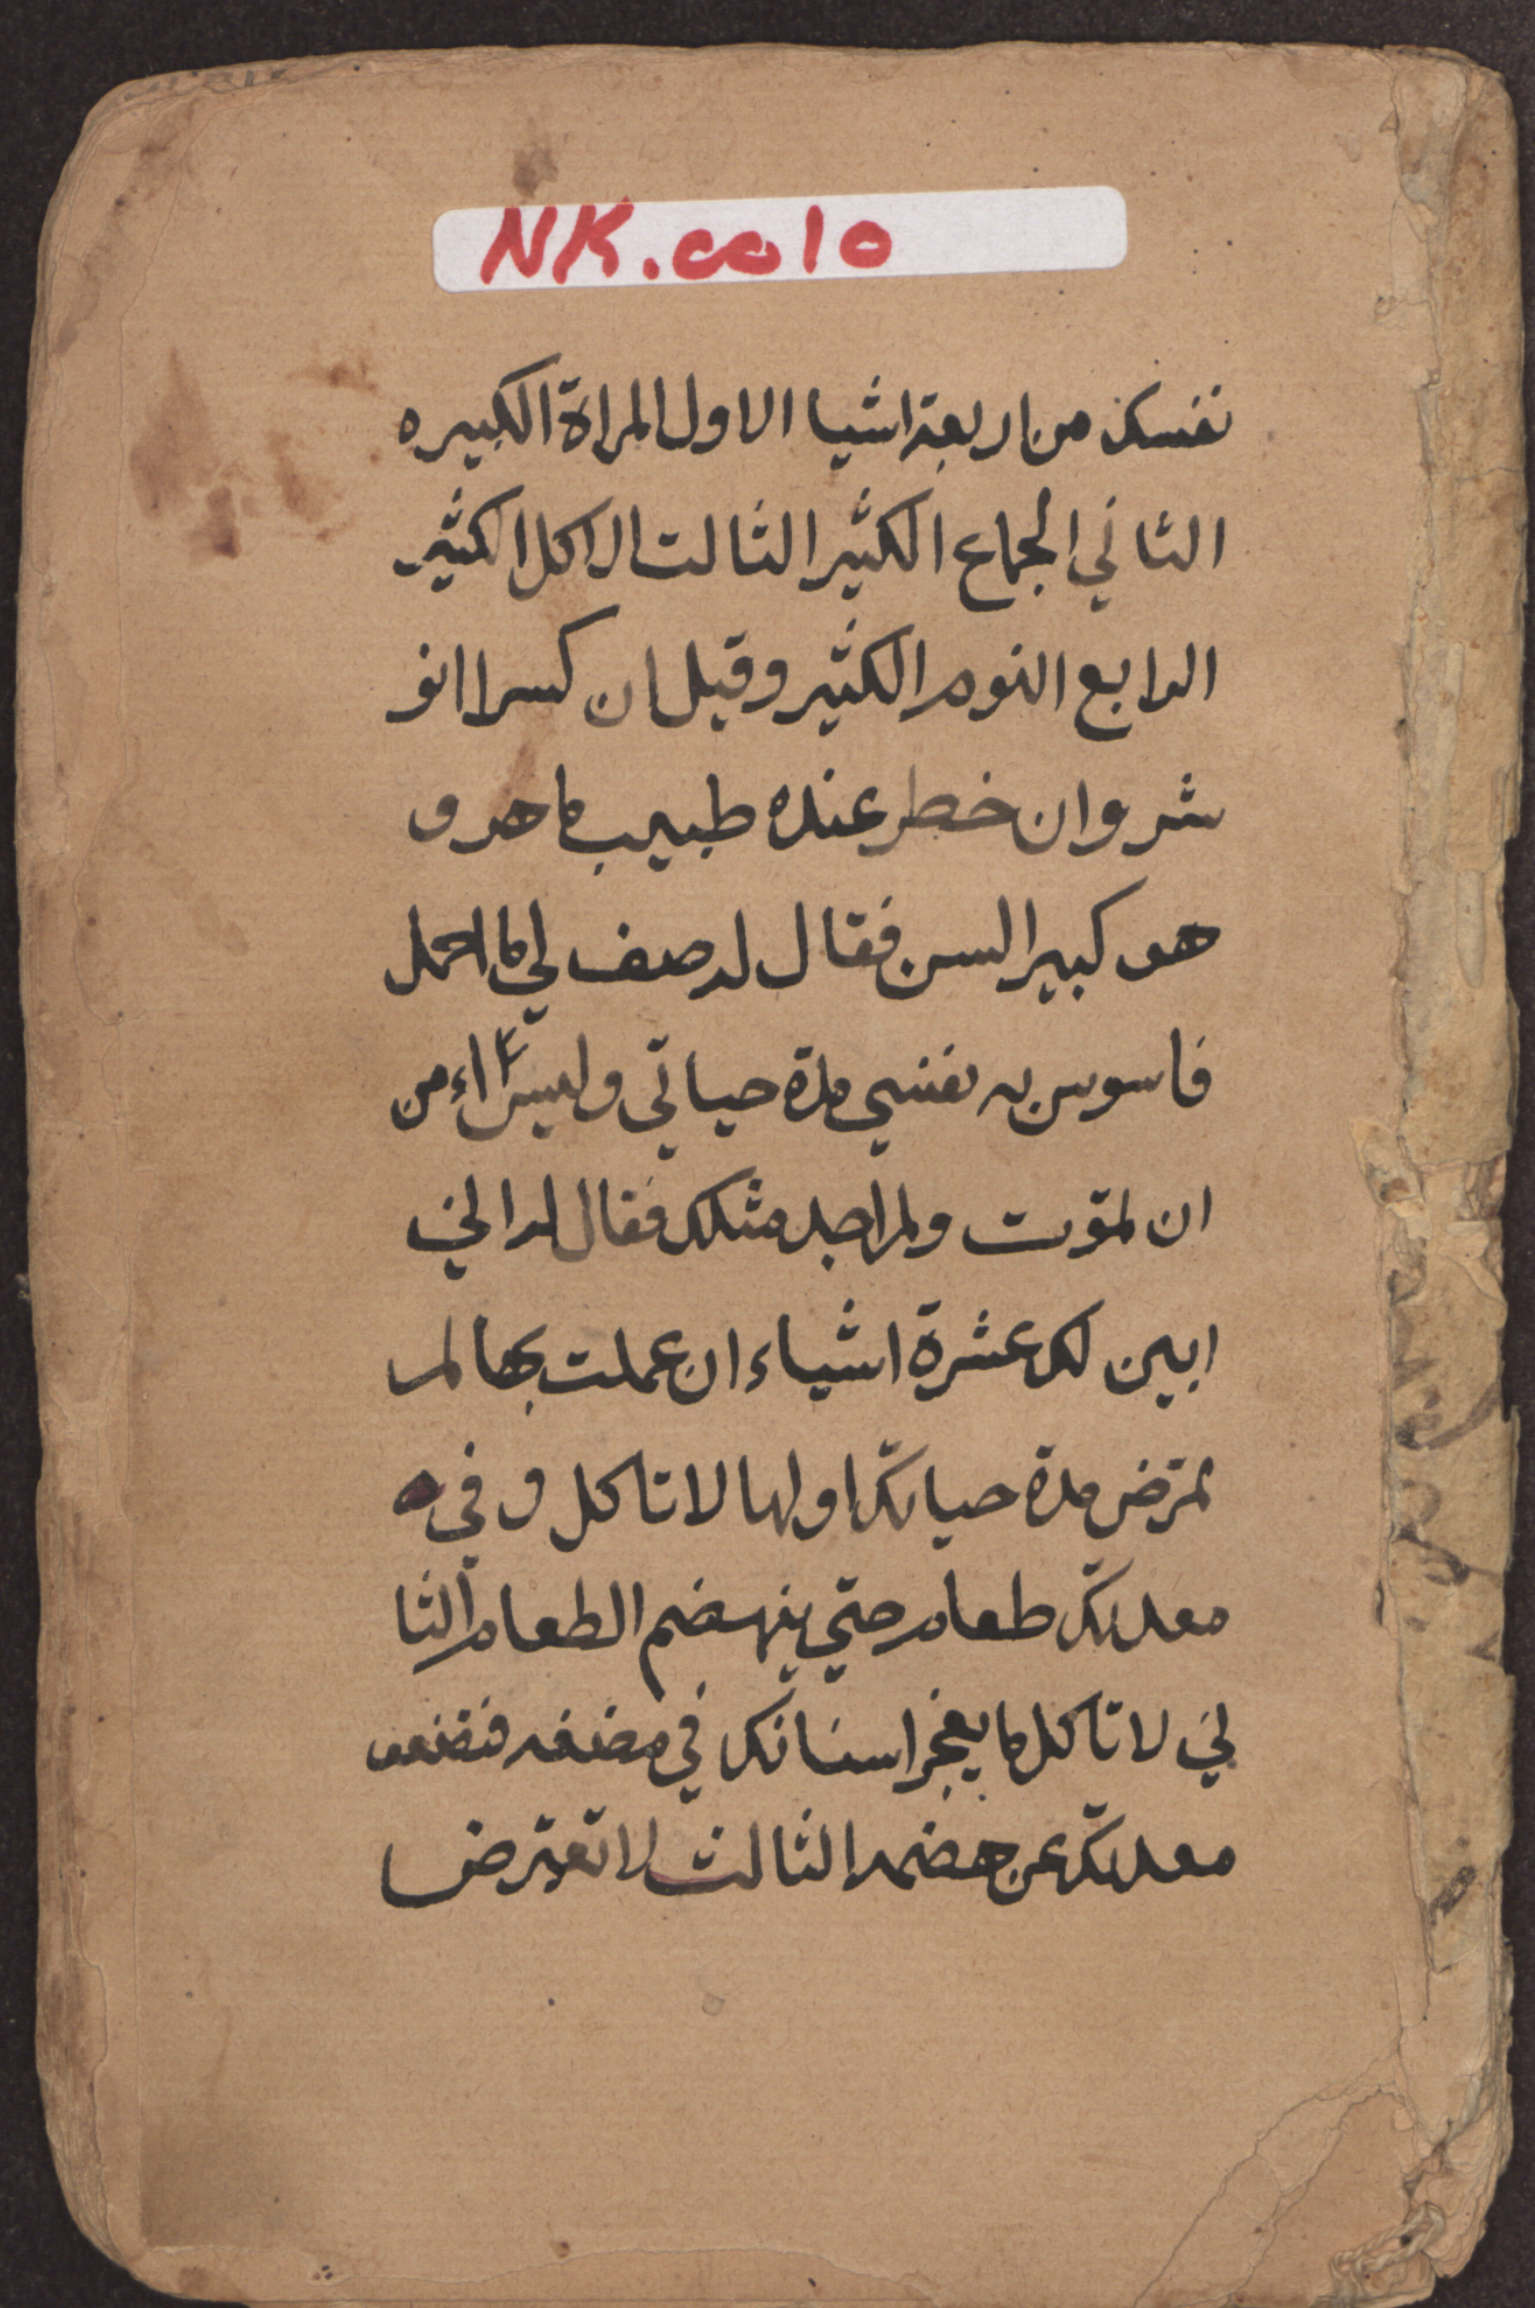 NK.0010
نفسك من اربعة اشيا الاول المراة الكبيره
الثاني الجماع الكثير الثالث الاكل الكثير
الرابع النوم الكثير وقيل ان كسرا انو
شروان خطر عنده طبيب ماهر و
هو كبير السن فقال له صف لي ما اعمل
فاسوس به نفسي مدة حياتي وليس من
ان تموت ولم اجد مثلك فقال له اني
ابين لك عشرة اشياء ان عملت بها لم
تمرض مدة حياتك اولها لا تاكل و في
معدتك طعام حتي ينهضم الطعام الثا
ني لا تاكل ما يعجز اسنانك في مضغه فتضعف
معدتك عن هضمه الثالث لا تعترض